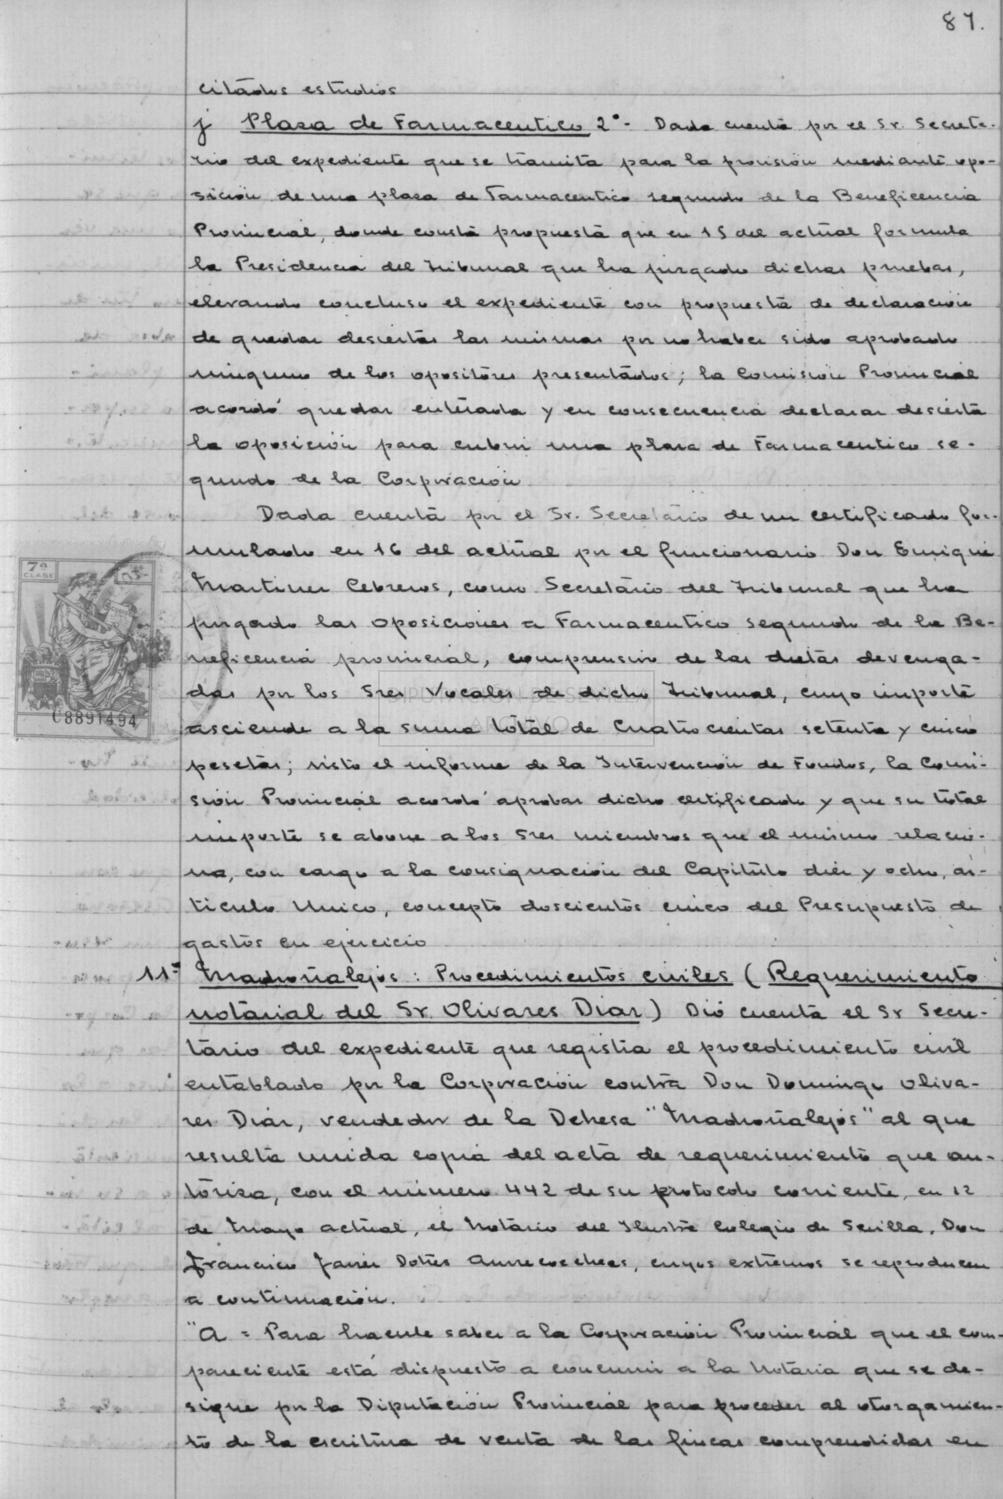 87.
citados estudios
j Plaza de Farmaceutico 2º- Dada cuenta por el Sr. Secreta-
rio del expediente que se tramita para la provision mediante opo-
sición de una plaza de Farmaceutico segundo de la Beneficencia
Provincial, donde consta propuesta que en 15 del actual formula
la Presidencia del Tribunal que ha juzgado dichas pruebas,
elevando concluso el expediente con propuesta de declaracion
de quedar desiertas las mismas por no haber sido aprobado
ninguno de los opositores presentados; la Comision Provincial
acordó quedar enterada y en consecuencia declarar desierta
la oposición para cubrir una plaza de Farmaceutico se-
gundo de la Corporación
Dada cuenta por el Sr. Secretario de un certificado for-
mulado en 16 del actual por el funcionario Don Enrique
Martinez Cebreros, como Secretario del Tribunal que ha
juzgado las oposiciones a Farmaceutico segundo de la Be-
neficencia provincial, comprensivo de las dietas devenga-
das por los Sres Vocales de dicho Tribunal, cuyo importe
asciende a la suma total de Cuatrocientas setenta y cinco
pesetas; visto el informe de la Intervención de Fondos, la Comi-
sión Provincial acordó aprobar dicho certificado y que su total
importe se abone a los Sres miembros que el mismo relacio-
na, con cargo a la consignación del Capitulo diez y ocho, ar-
ticulo Unico, concepto doscientos cinco del Presupuesto de
gastos en ejercicio
11º Madroñalejos: Procedimientos civiles (Requerimiento
notarial del Sr. Olivares Diaz) Dió cuenta el Sr Secre-
tario del expediente que registra el procedimiento civil
entablado por la Corporación contra Don Domingo Oliva-
res Diaz, vendedor de la Dehesa "Madroñalejos" al que
resulta unida copia del acta de requerimiento que au-
toriza, con el número 442 de su protocolo corriente, en 12
de Mayo actual, el Notario del Ilustre Colegio de Sevilla, Don
Francisco Javier Dotres Aurrecoechea, cuyos extremos se reproducen
a continuación.
"A = Para hacerle saber a la Corporación Provincial que el com-
pareciente está dispuesto a concurrir a la Notaria que se de-
signe por la Diputación Provincial para proceder al otorgamien-
to de la escritura de venta de las fincas comprendidas en
7ª
CLASE
C8891494
DIPUTACIÓN DE SEVILLA
ARCHIVO